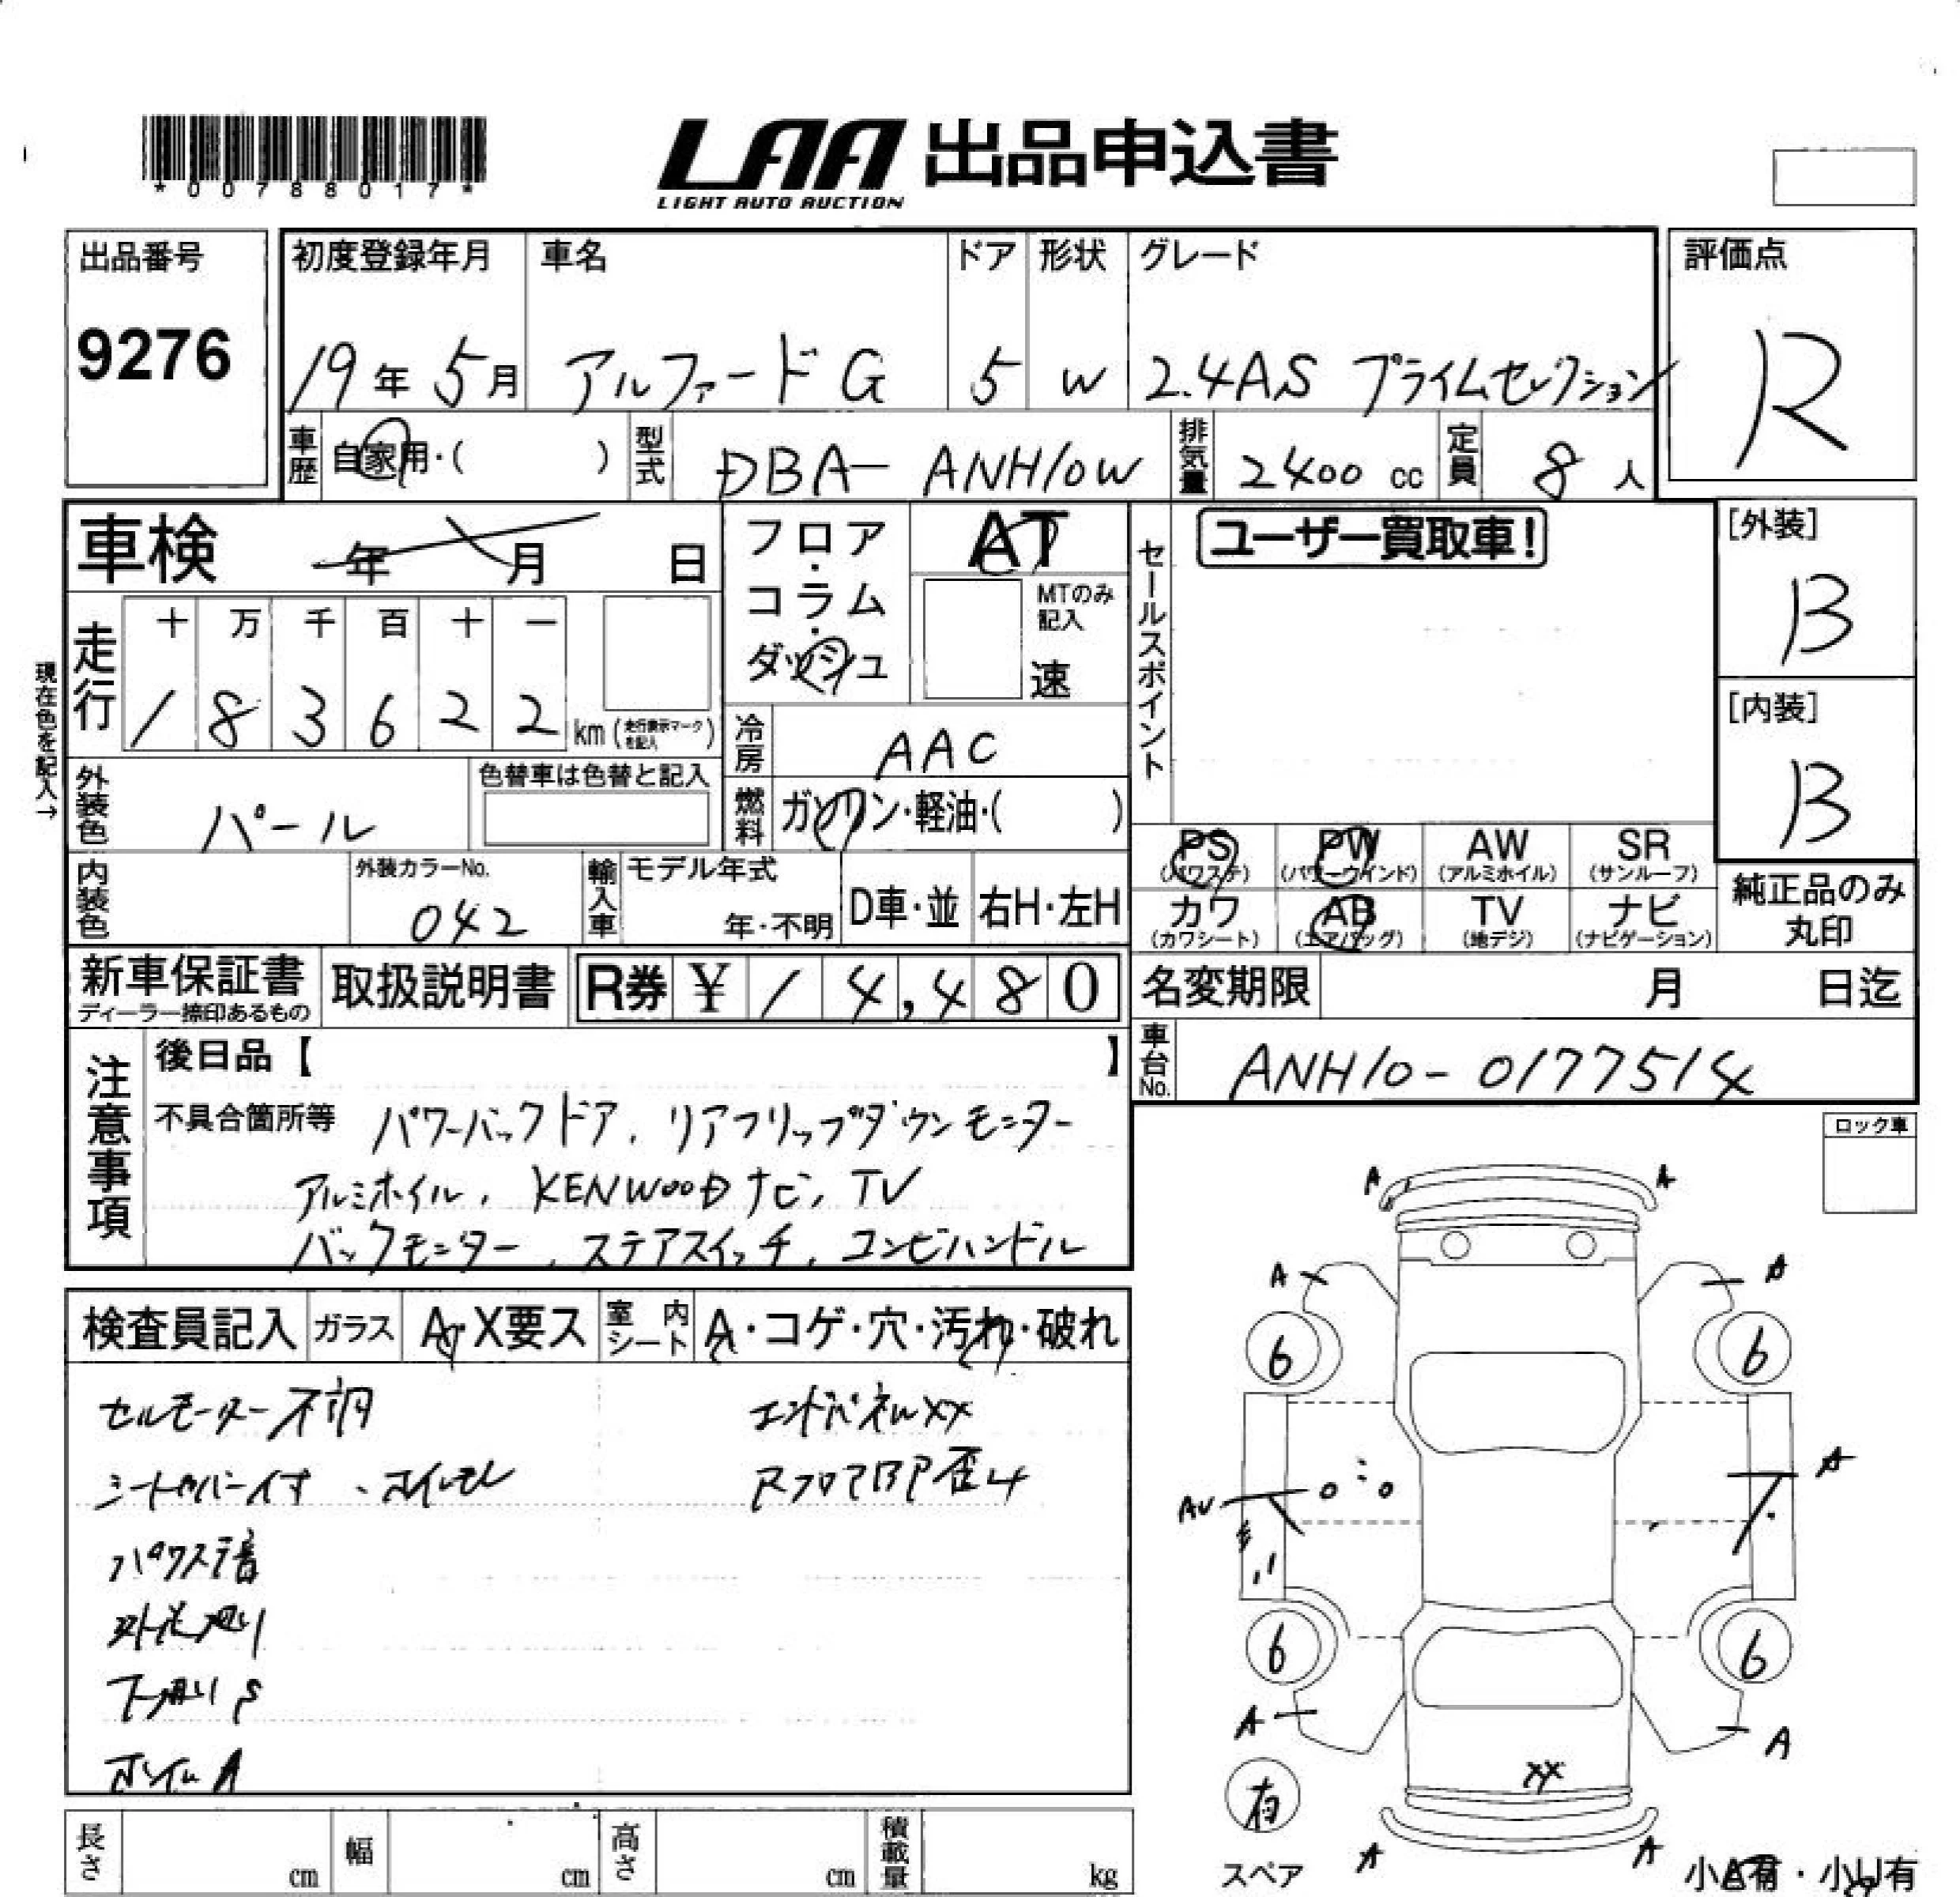 *00788017*
LAA 出品申込書
LIGHT AUTO AUCTION
出品番号
9276
初度登録年月
19年 5月
車名
アルファード G
ドア
5
形状
W
グレード
2.4AS プライムセレクション
評価点
R
車歴
自家用・( )
型式
DBA- ANH10W
排気量
2400 cc
定員
8 人
車検 年 月 日
フロア・コラム・ダッシュ
AT
MTのみ記入
速
セールスポイント
ユーザー買取車!
[外装]
B
[内装]
B
現在色を記入→
走行
十 万 千 百 十 一
1 8 3 6 2 2 km (走行表示マークを記入)
冷房
AAC
燃料
ガソリン・軽油・( )
外装色
パール
色替車は色替と記入
内装色
外装カラーNo.
042
輸入車
モデル年式
年・不明
D車・並
右H・左H
PS (パワステ)
PW (パワーウインド)
AW (アルミホイル)
SR (サンルーフ)
カワ (カワシート)
AB (エアバッグ)
TV (地デジ)
ナビ (ナビゲーション)
純正品のみ丸印
新車保証書
ディーラー捺印あるもの
取扱説明書
R券 ¥ 14,480
名変期限 月 日迄
車台No.
ANH10-0177514
注意事項
後日品【 】
不具合箇所等 パワーバックドア、リアフリップダウンモニター
アルミホイル、KENWOODナビ、TV
バックモニター、ステアスイッチ、コンビハンドル
ロック車
検査員記入
ガラス
A・X要ス
室内シート
A・コゲ・穴・汚れ・破れ
セルモーター不調
エンドパネルXX
シートカバー付オ
RフロアBP歪み
パワステ音
下廻りS
ホイルA
A A
A A
6 6
AU A
6 6
A A
XX
有
スペア
A A
小A有・小U有
長さ cm
幅 cm
高さ cm
積載量 kg